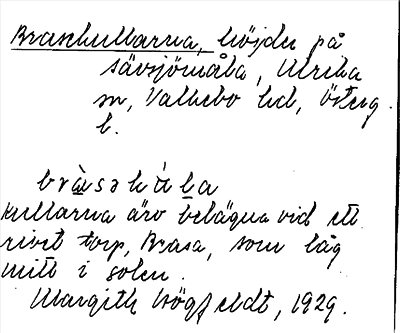 Brasekullarna, höjder på
sävsjömåla, Ulrika
sn, Valkebo hd, Österg.
l.
Kullarna äro belägna vid ett
rivet torp, Brasa, som låg
mitt i solen.
Margith Högfeldt, 1929.